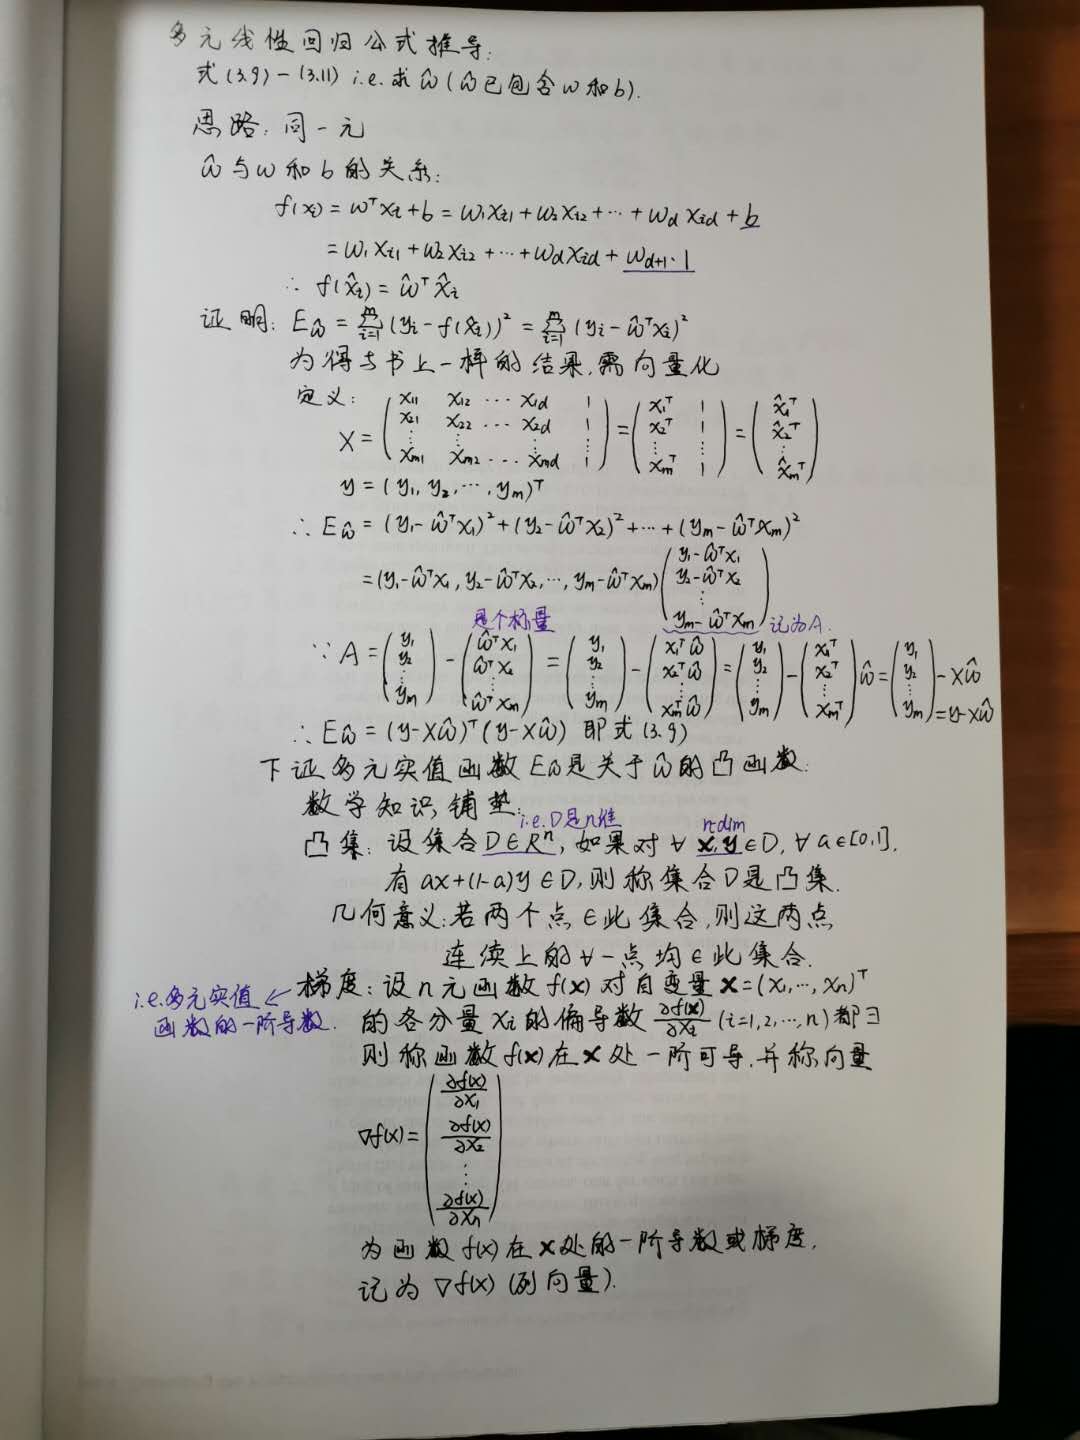 多元线性回归公式推导:
式(3.9)-(3.11) i.e.求ŵ(ŵ已包含w和b).
思路:同一元
ŵ与w和b的关系:
f(xᵢ) = wᵀxᵢ+b = w₁xᵢ₁+w₂xᵢ₂+…+w_d x_id+b
= w₁xᵢ₁+w₂xᵢ₂+…+w_d x_id+w_d+1·1
∴ f(x̂ᵢ) = ŵᵀx̂ᵢ
证明: E_ŵ = Σ_{i=1}^{m} (yᵢ-f(x̂ᵢ))² = Σ_{i=1}^{m} (yᵢ-ŵᵀxᵢ)²
为得与书上一样的结果,需向量化
定义:
X = (x₁₁ x₁₂ … x_1d 1; x₂₁ x₂₂ … x_2d 1; ⋮ ⋮ ⋮ ⋮; x_m1 x_m2 … x_md 1) = (x₁ᵀ 1; x₂ᵀ 1; ⋮ ⋮; x_mᵀ 1) = (x̂₁ᵀ; x̂₂ᵀ; ⋮; x̂_mᵀ)
y = (y₁, y₂, …, y_m)ᵀ
∴ E_ŵ = (y₁-ŵᵀx₁)²+(y₂-ŵᵀx₂)²+…+(y_m-ŵᵀx_m)²
= (y₁-ŵᵀx₁, y₂-ŵᵀx₂, …, y_m-ŵᵀx_m)(y₁-ŵᵀx₁; y₂-ŵᵀx₂; ⋮; y_m-ŵᵀx_m) 记为A.
是个标量
∵ A = (y₁; y₂; ⋮; y_m) - (ŵᵀx₁; ŵᵀx₂; ⋮; ŵᵀx_m) = (y₁; y₂; ⋮; y_m) - (x₁ᵀŵ; x₂ᵀŵ; ⋮; x_mᵀŵ) = (y₁; y₂; ⋮; y_m) - (x₁ᵀ; x₂ᵀ; ⋮; x_mᵀ)ŵ = (y₁; y₂; ⋮; y_m) - Xŵ
= y-Xŵ
∴ E_ŵ = (y-Xŵ)ᵀ(y-Xŵ) 即式(3.9)
下证多元实值函数E_ŵ是关于ŵ的凸函数:
数学知识铺垫:
i.e.D是n维 n-dim
凸集: 设集合D∈Rⁿ, 如果对∀ x,y∈D, ∀ a∈[0,1],
有 ax+(1-a)y∈D, 则称集合D是凸集.
几何意义:若两个点∈此集合,则这两点
连续上的∀一点均∈此集合.
i.e.多元实值 ← 梯度: 设n元函数f(x)对自变量x=(x₁,…,xₙ)ᵀ
函数的一阶导数. 的各分量xᵢ的偏导数 ∂f(x)/∂xᵢ (i=1,2,…,n)都∃
则称函数f(x)在x处一阶可导,并称向量
∇f(x) = (∂f(x)/∂x₁; ∂f(x)/∂x₂; ⋮; ∂f(x)/∂xₙ)
为函数f(x)在x处的一阶导数或梯度,
记为∇f(x) (列向量).